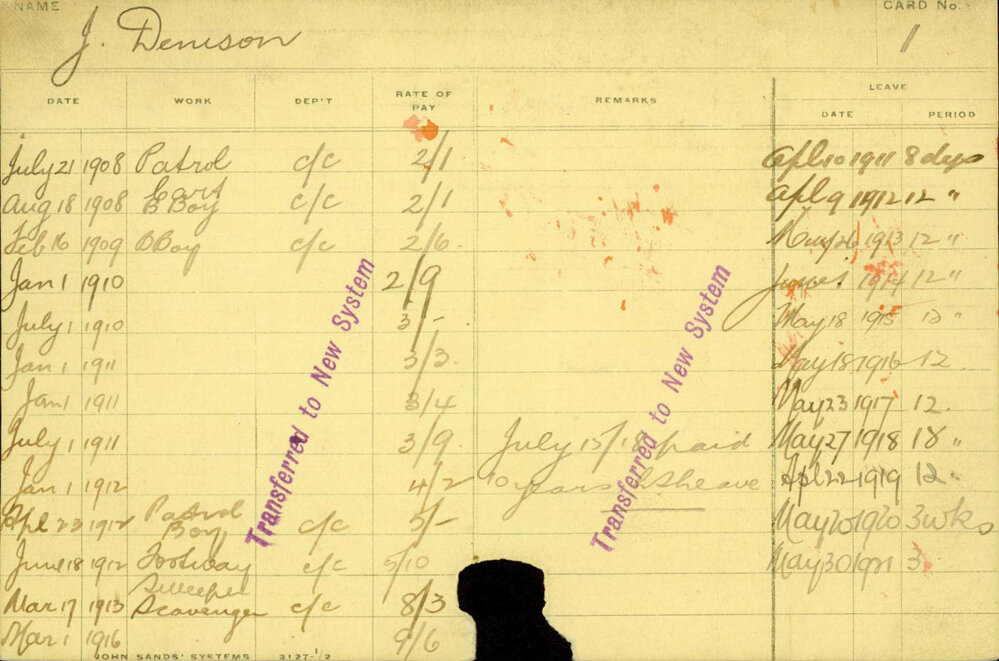 NAME CARD No.
J. Denison 1
DATE WORK DEP'T RATE OF PAY REMARKS LEAVE
DATE PERIOD
July 21 1908 Patrol c/c 2/1 Apl 10 1911 8 days
Aug 18 1908 Cart B Boy c/c 2/1 Apl 9 1912 12 "
Feb 16 1909 B Boy c/c 2/6. May 26 1913 12 "
Jan 1 1910 2/9 June 1 1914 12 "
July 1 1910 3/- May 18 1915 12 "
Jan 1 1911 3/3. May 18 1916 12.
Jan 1 1911 3/4 May 23 1917 12.
July 1 1911 3/9. July 15/18 paid May 27 1918 18 "
Jan 1 1912 4/2 10 years Leave Apl 22 1919 12 "
Apl 23 1912 Patrol Boy c/c 5/- May 20 1920 3 wks
June 18 1912 Footway c/c 5/10 May 30 1921 3
Sweeper
Mar 17 1913 Scavenger c/c 8/3
Mar 1 1916 9/6
Transferred to New System
Transferred to New System
JOHN SANDS' SYSTEMS 3127-1/2